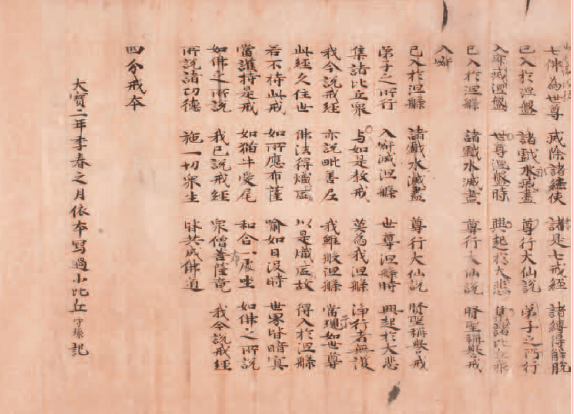 七佛為世尊 滅除諸結使 說是七戒經 諸縛得解脫
已入於涅盤 諸戲永滅盡 尊行大仙說 弟子之所行
入寂滅涅盤 世尊涅盤時 興起於大悲 集諸比丘衆
已入於涅槃 諸戲永滅盡 尊行大仙說 賢聖稱譽戒
入寂
弟子之所行 入寂滅涅槃 世尊涅槃時 興起於大悲
集諸比丘衆 与如是教戒 莫為我涅槃 淨行者無護
我今說戒經 亦說毗善尼 我雖般涅槃 當視如世尊
此經久住世 佛法得熾盛 以是熾盛故 得入於涅槃
若不持此戒 如所應布薩 喻如日没時 世界皆暗冥
當護持是戒 如猫牛愛尾 和合一處坐 如佛之所說
如佛之所說 我已說戒經 衆僧菩薩竟 我今說戒經
所說諸功德 施一切衆生 皆共成佛道
四分戒本
大寶二年季春之月依本寫過小比丘 記